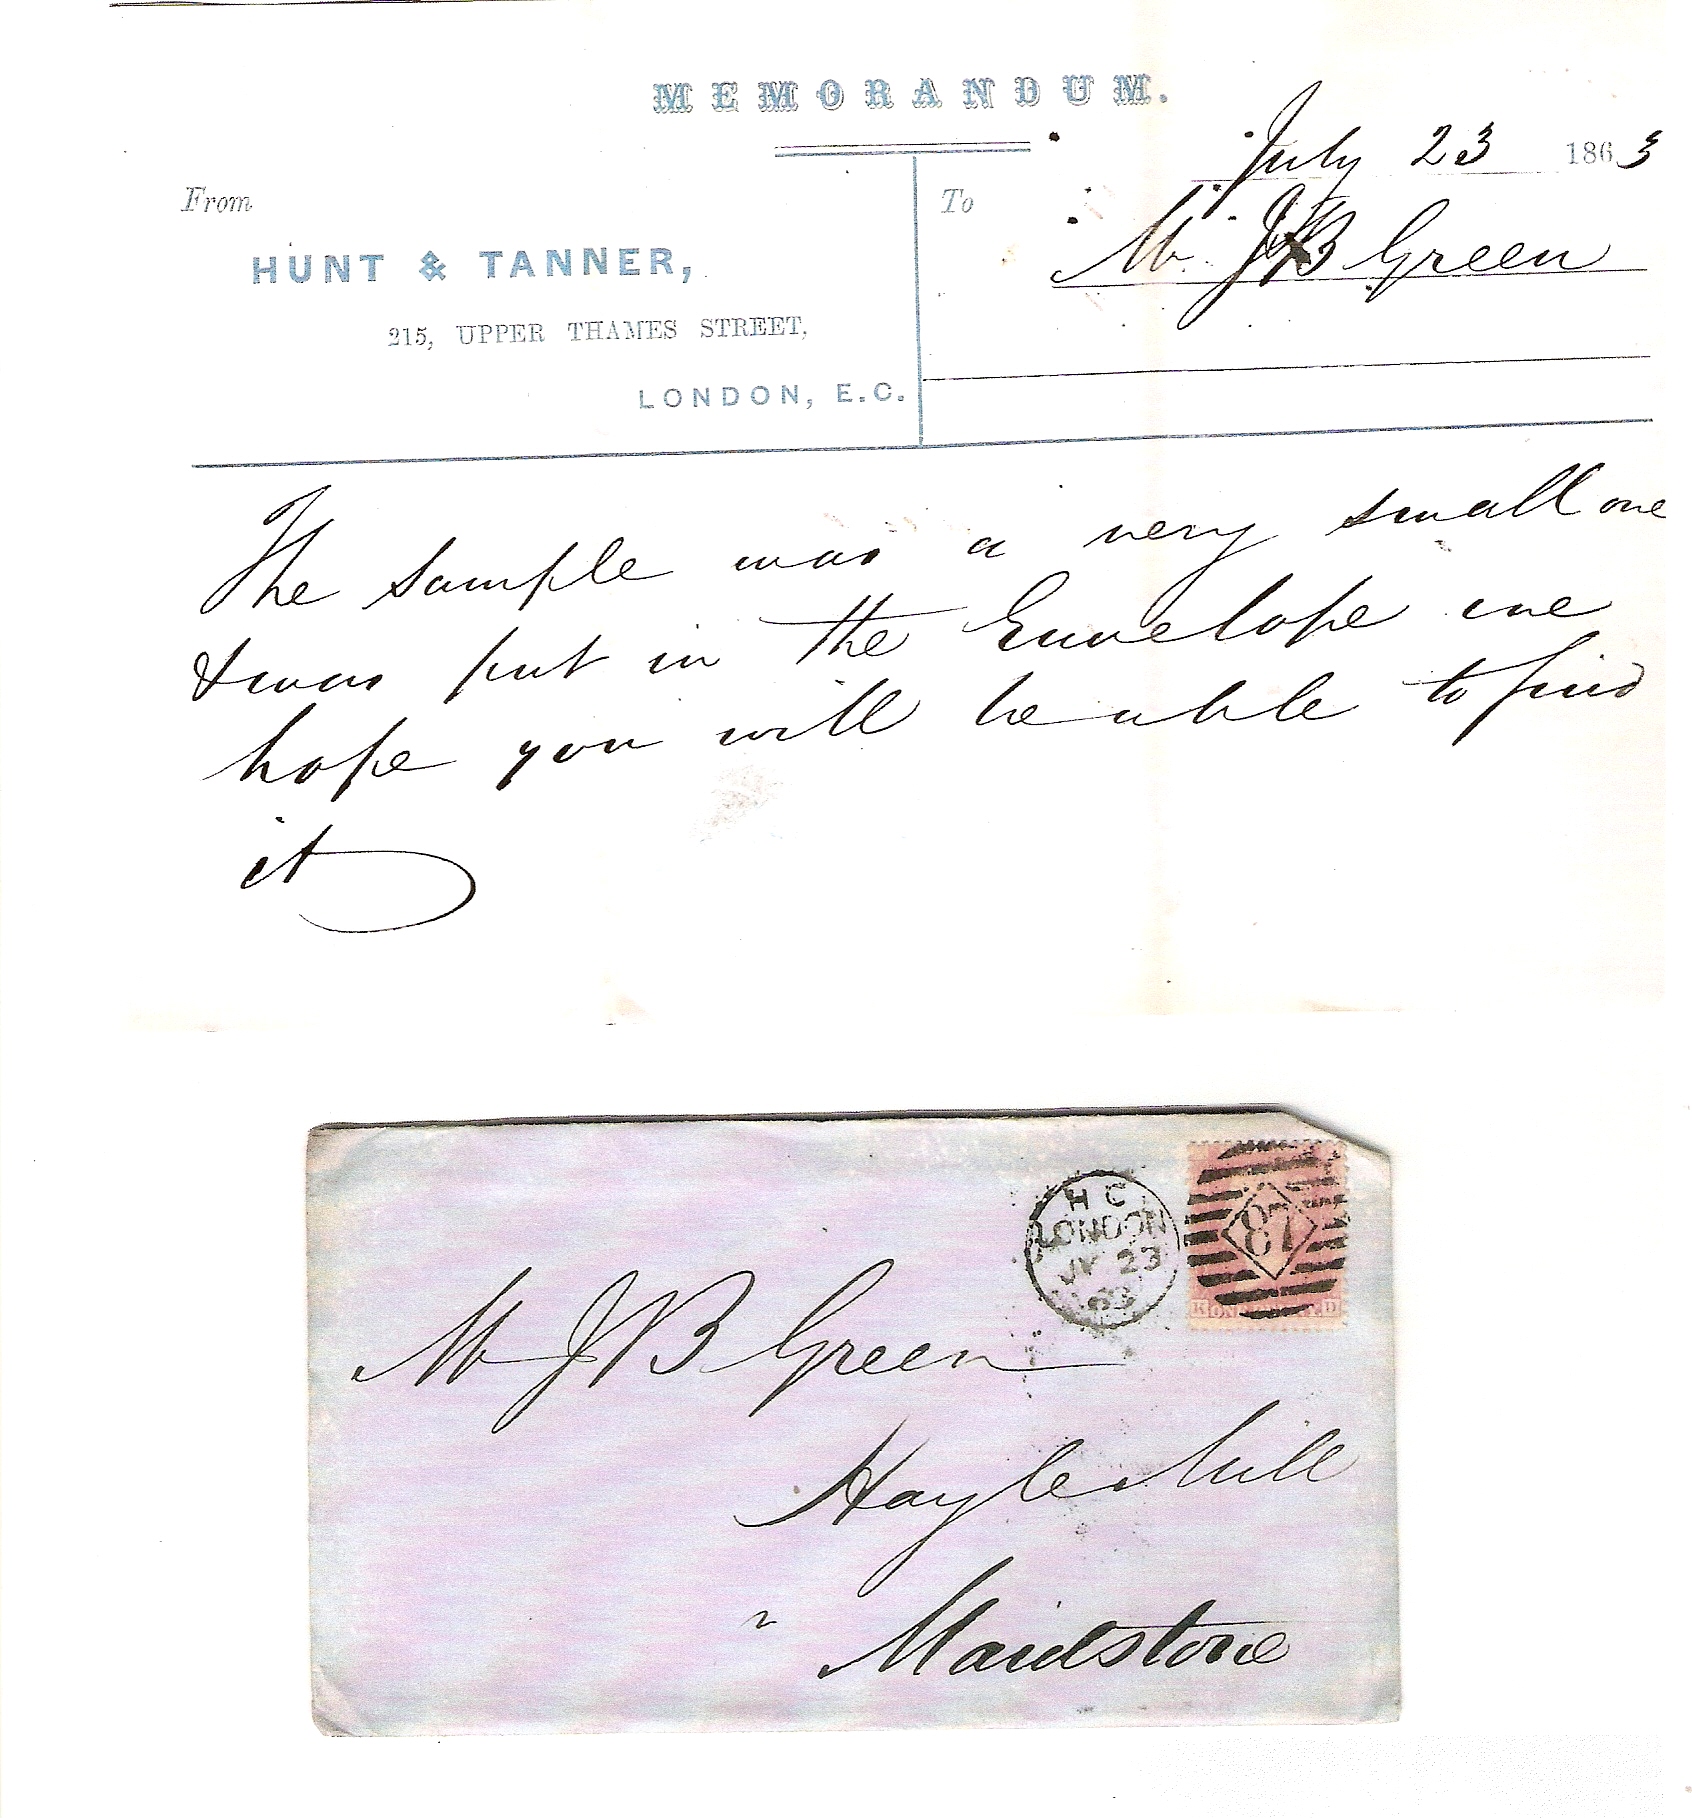 MEMORANDUM.
July 23 1863
From
To
Mr. JB Green
HUNT & TANNER,
215, UPPER THAMES STREET,
LONDON, E.C.
The sample was a very small one
& was put in the Envelope we
hope you will be able to find
it
H C
LONDON
JY 23
63
87
K ONE D
Mr J B Green
Hayle Mill
Maidstone